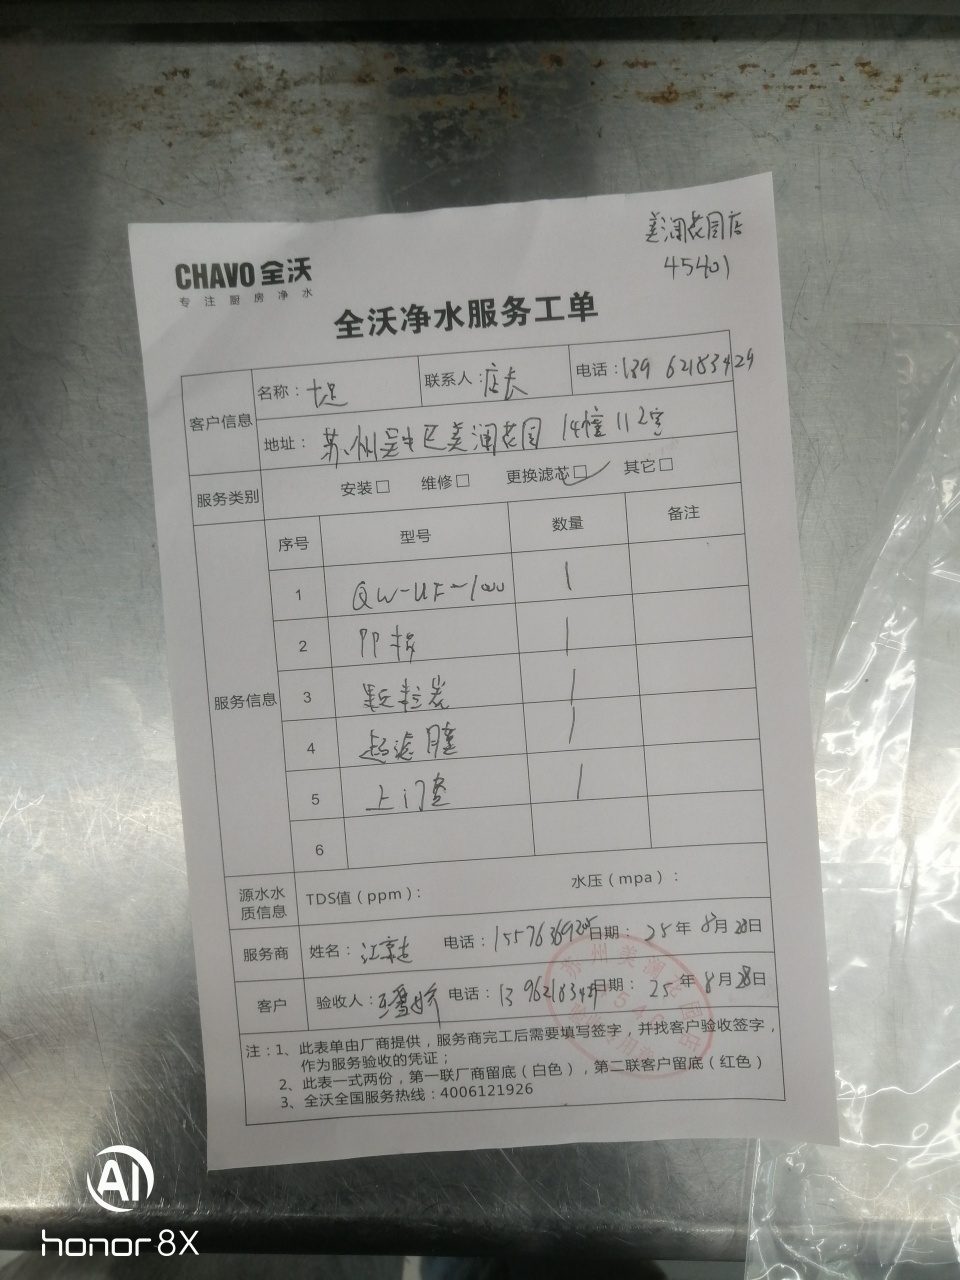 美澜花园店
45401
CHAVO 全沃
专注厨房净水
全沃净水服务工单
客户信息 名称：七足 联系人：店长 电话：139 62183429
地址：苏州吴中区美澜花园 14幢112室
服务类别 安装□ 维修□ 更换滤芯□✓ 其它□
服务信息 序号 型号 数量 备注
1 QW-UF-1000 1
2 PP棉 1
3 颗粒炭 1
4 超滤膜 1
5 上门费 1
6
源水水质信息 TDS值（ppm）： 水压（mpa）：
服务商 姓名： 电话： 日期：25年8月28日
客户 验收人： 电话：13962183429 日期：25年8月28日
注：1、此表单由厂商提供，服务商完工后需要填写签字，并找客户验收签字，
作为服务验收的凭证；
2、此表一式两份，第一联厂商留底（白色），第二联客户留底（红色）
3、全沃全国服务热线：4006121926
AI
honor 8X